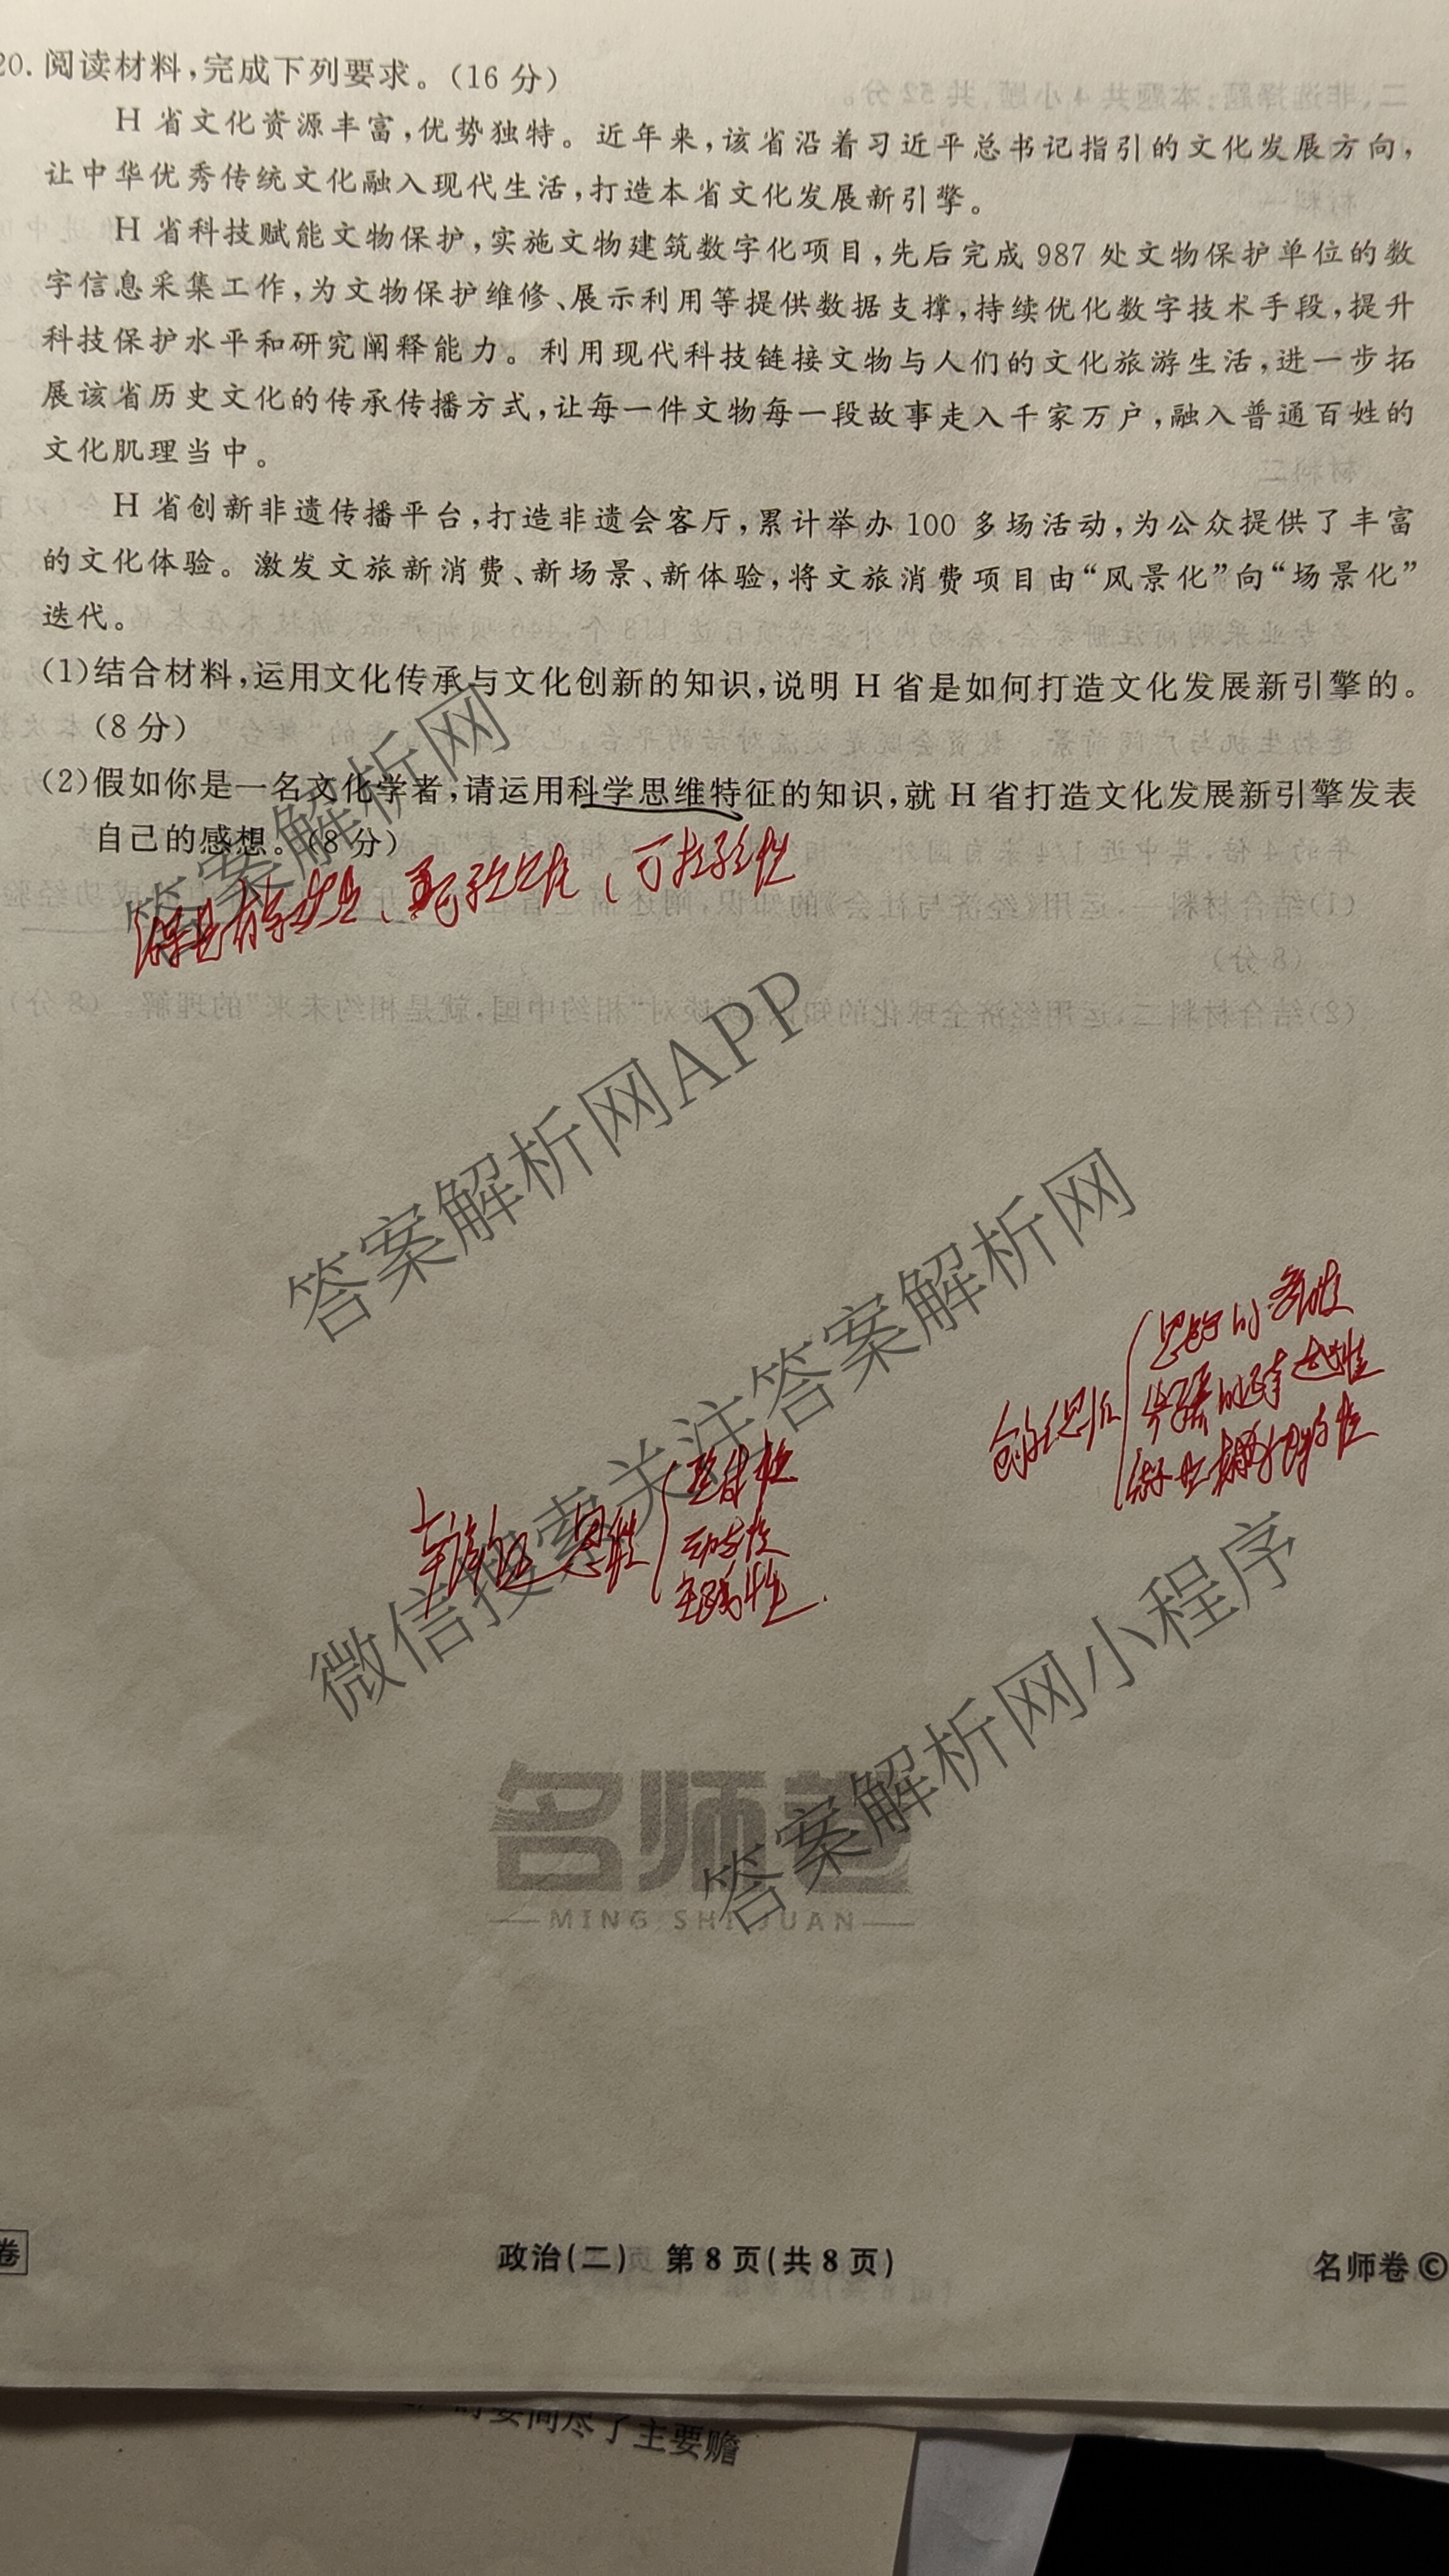 20. 阅读材料,完成下列要求。(16 分)
H 省文化资源丰富,优势独特。近年来,该省沿着习近平总书记指引的文化发展方向,
让中华优秀传统文化融入现代生活,打造本省文化发展新引擎。
H 省科技赋能文物保护,实施文物建筑数字化项目,先后完成 987 处文物保护单位的数
字信息采集工作,为文物保护维修、展示利用等提供数据支撑,持续优化数字技术手段,提升
科技保护水平和研究阐释能力。利用现代科技链接文物与人们的文化旅游生活,进一步拓
展该省历史文化的传承传播方式,让每一件文物每一段故事走入千家万户,融入普通百姓的
文化肌理当中。
H 省创新非遗传播平台,打造非遗会客厅,累计举办 100 多场活动,为公众提供了丰富
的文化体验。激发文旅新消费、新场景、新体验,将文旅消费项目由“风景化”向“场景化”
迭代。
(1)结合材料,运用文化传承与文化创新的知识,说明 H 省是如何打造文化发展新引擎的。
(8 分)
(2)假如你是一名文化学者,请运用科学思维特征的知识,就 H 省打造文化发展新引擎发表
自己的感想。(8 分)
答案解析网
、可检验性
答案解析网APP
微信搜索关注答案解析网
创新思维 思路的多向性
辩证思维 整体性
动态性
实践性
答案解析网小程序
名师卷
MING SHI JUAN
卷
政治(二) 第 8 页(共 8 页)
名师卷 ©
了主要赡